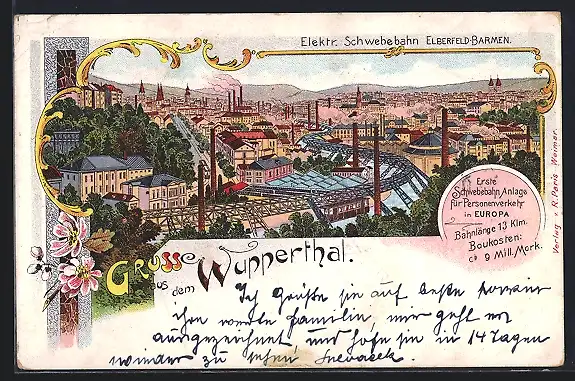 Elektr. Schwebebahn ELBERFELD-BARMEN.
Erste
Schwebebahn Anlage
für Personenverkehr
in EUROPA
Bahnlänge 13 Klm.
Baukosten:
ca 9 Mill. Mark.
Verlag v. R. Paris Weimar.
GRUSS
aus dem Wupperthal.
Ich Grüße sie auf beste sowie
ihre werte familie, mir geht es
ausgezeichnet und hofe sie in 14 Tagen
wieder zu sehen